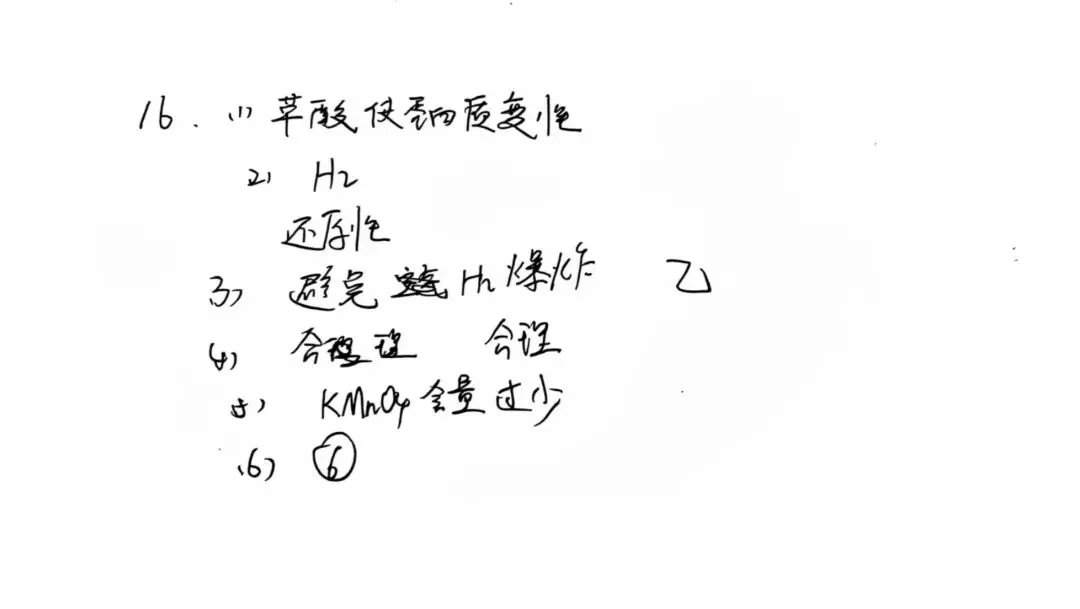 16. (1) 草酸使蛋白质变性
(2) H2
还原性
(3) 避免 H2 爆炸 乙
(4) 合理 合理
(5) KMnO4 含量过少
(6) ⑥